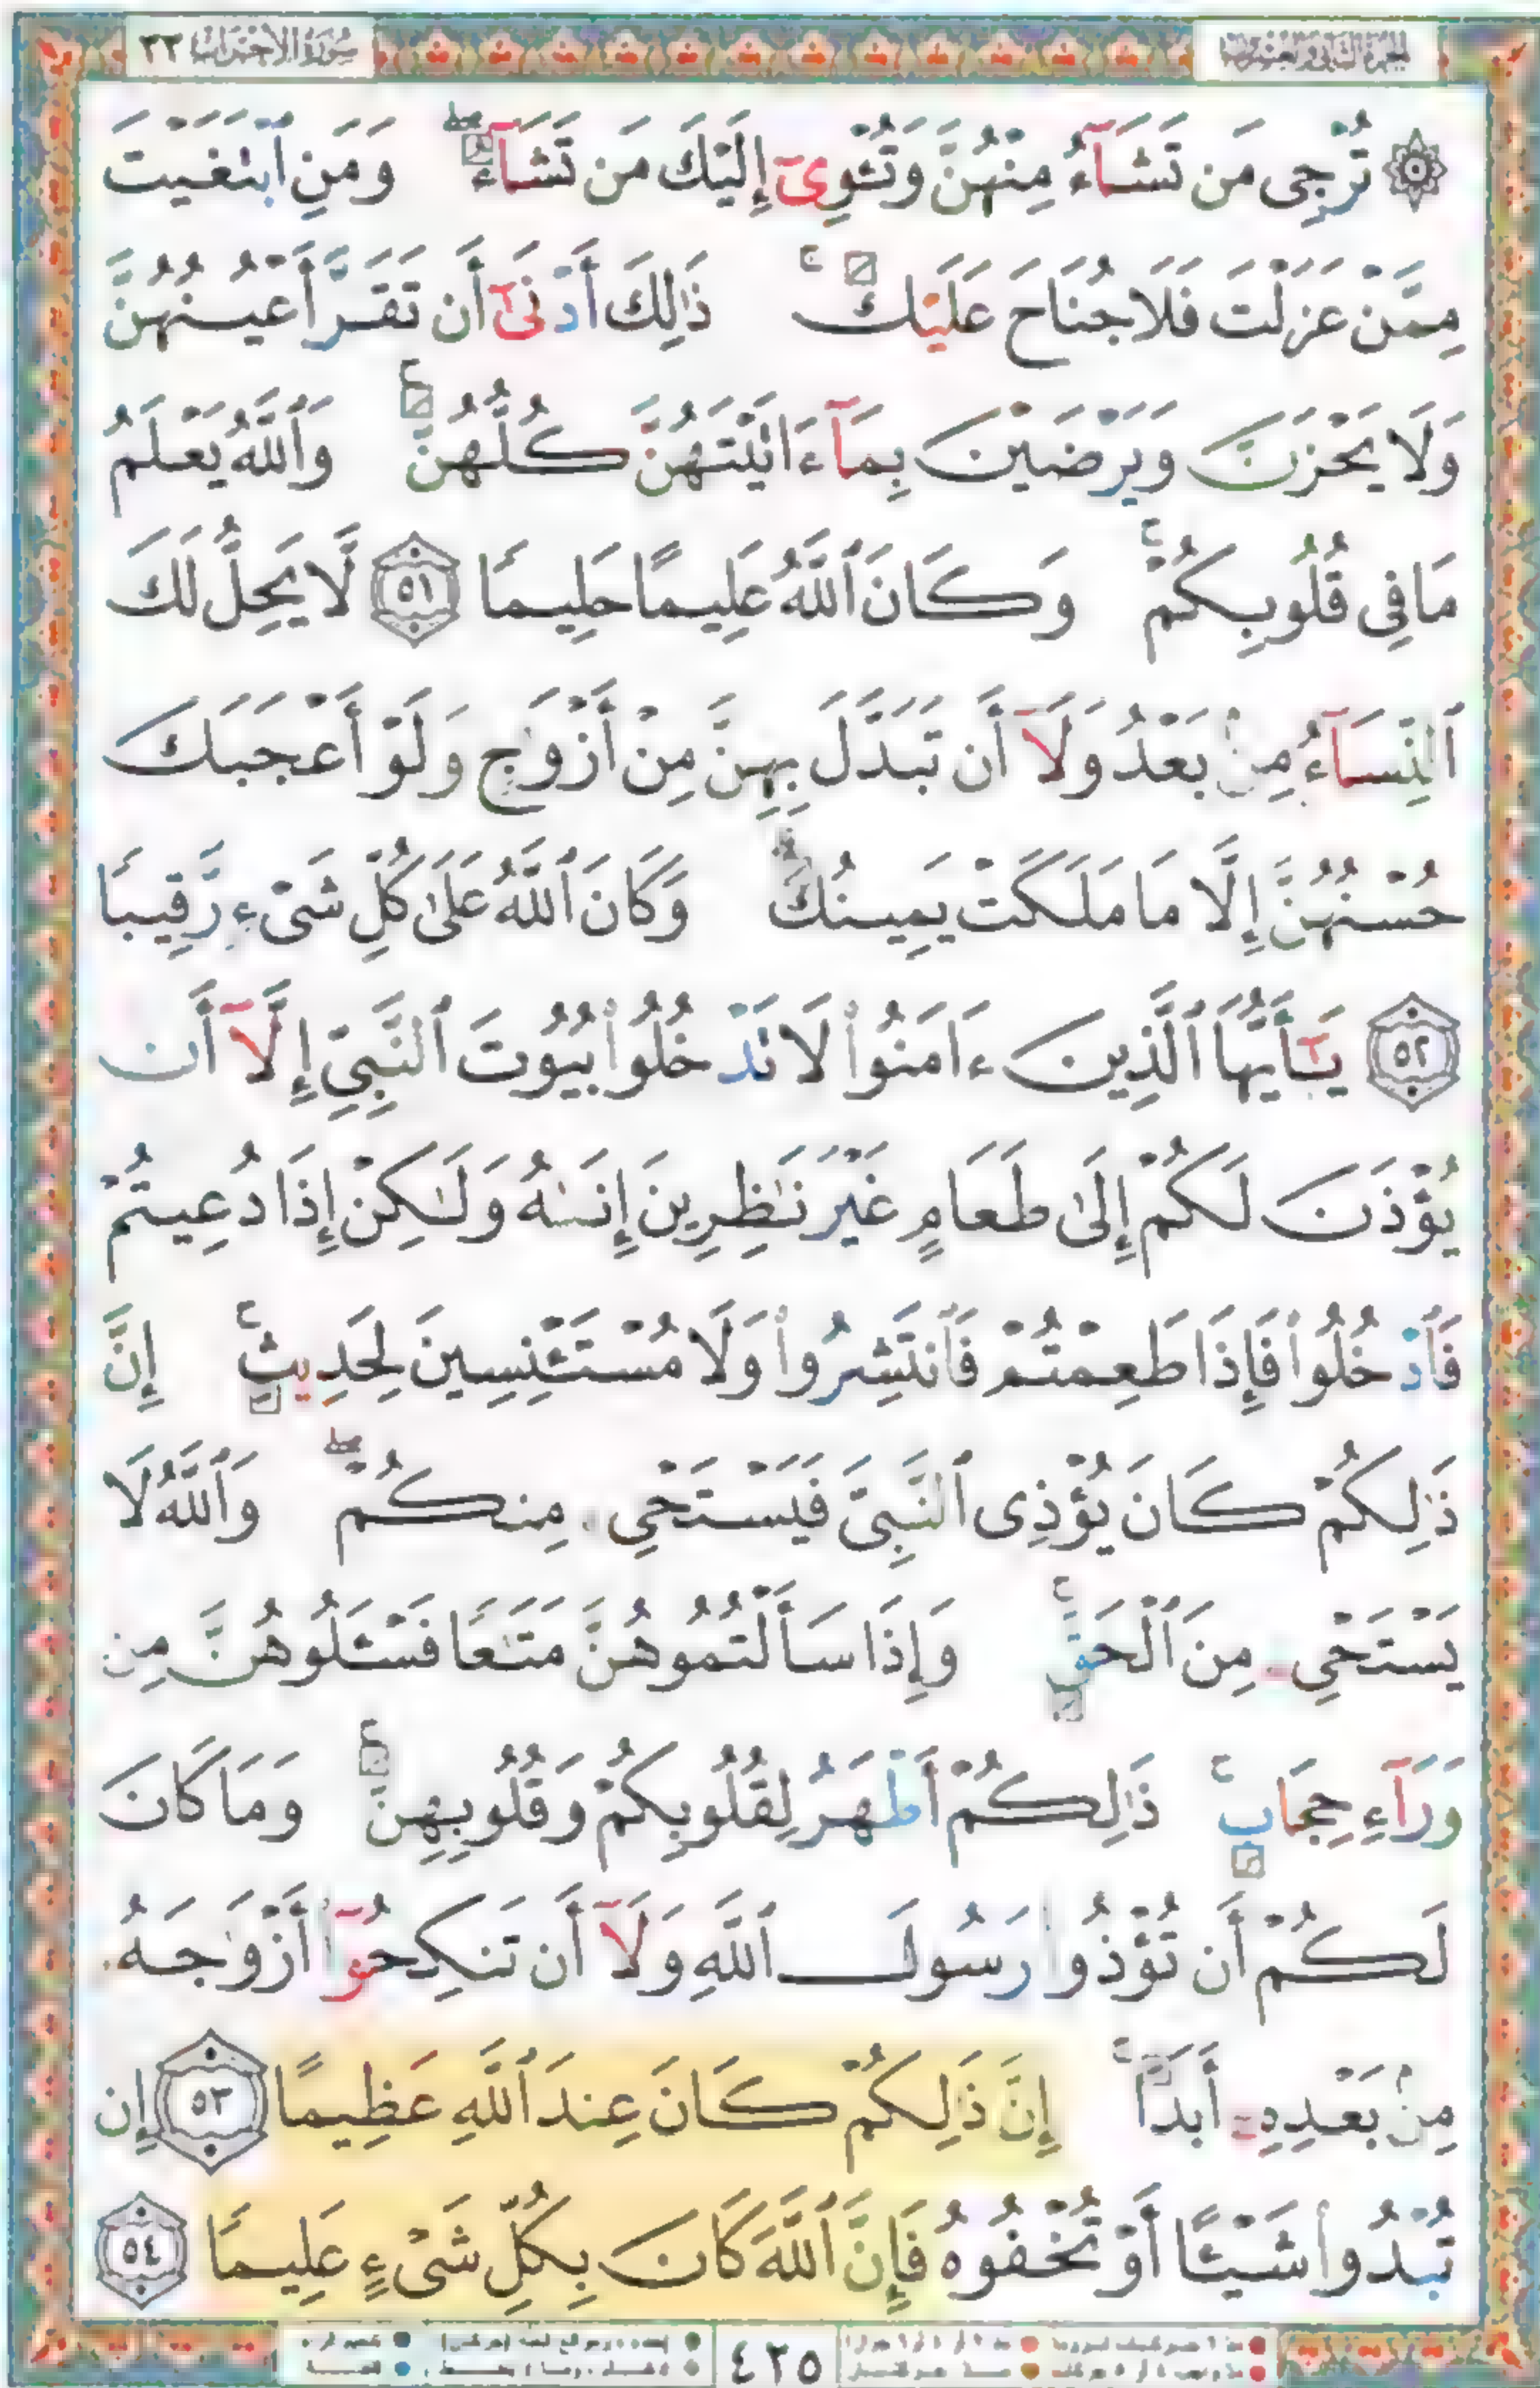 سُورَةُ الأَحْزَابِ ٣٣ الجزء الثاني والعشرون
۞ تُرْجِى مَن تَشَآءُ مِنْهُنَّ وَتُـْٔوِىٓ إِلَيْكَ مَن تَشَآءُ ۖ وَمَنِ ٱبْتَغَيْتَ
مِمَّنْ عَزَلْتَ فَلَا جُنَاحَ عَلَيْكَ ۚ ذَٰلِكَ أَدْنَىٰٓ أَن تَقَرَّ أَعْيُنُهُنَّ
وَلَا يَحْزَنَّ وَيَرْضَيْنَ بِمَآ ءَاتَيْتَهُنَّ كُلُّهُنَّ ۚ وَٱللَّهُ يَعْلَمُ
مَا فِى قُلُوبِكُمْ ۚ وَكَانَ ٱللَّهُ عَلِيمًا حَلِيمًا ٥١ لَّا يَحِلُّ لَكَ
ٱلنِّسَآءُ مِنۢ بَعْدُ وَلَآ أَن تَبَدَّلَ بِهِنَّ مِنْ أَزْوَٰجٍ وَلَوْ أَعْجَبَكَ
حُسْنُهُنَّ إِلَّا مَا مَلَكَتْ يَمِينُكَ ۗ وَكَانَ ٱللَّهُ عَلَىٰ كُلِّ شَىْءٍ رَّقِيبًا
٥٢ يَـٰٓأَيُّهَا ٱلَّذِينَ ءَامَنُوا۟ لَا تَدْخُلُوا۟ بُيُوتَ ٱلنَّبِىِّ إِلَّآ أَن
يُؤْذَنَ لَكُمْ إِلَىٰ طَعَامٍ غَيْرَ نَـٰظِرِينَ إِنَىٰهُ وَلَـٰكِنْ إِذَا دُعِيتُمْ
فَٱدْخُلُوا۟ فَإِذَا طَعِمْتُمْ فَٱنتَشِرُوا۟ وَلَا مُسْتَـْٔنِسِينَ لِحَدِيثٍ ۚ إِنَّ
ذَٰلِكُمْ كَانَ يُؤْذِى ٱلنَّبِىَّ فَيَسْتَحْىِۦ مِنكُمْ ۖ وَٱللَّهُ لَا
يَسْتَحْىِۦ مِنَ ٱلْحَقِّ ۚ وَإِذَا سَأَلْتُمُوهُنَّ مَتَـٰعًا فَسْـَٔلُوهُنَّ مِن
وَرَآءِ حِجَابٍ ۚ ذَٰلِكُمْ أَطْهَرُ لِقُلُوبِكُمْ وَقُلُوبِهِنَّ ۚ وَمَا كَانَ
لَكُمْ أَن تُؤْذُوا۟ رَسُولَ ٱللَّهِ وَلَآ أَن تَنكِحُوٓا۟ أَزْوَٰجَهُۥ
مِنۢ بَعْدِهِۦٓ أَبَدًا ۚ إِنَّ ذَٰلِكُمْ كَانَ عِندَ ٱللَّهِ عَظِيمًا ٥٣ إِن
تُبْدُوا۟ شَيْـًٔا أَوْ تُخْفُوهُ فَإِنَّ ٱللَّهَ كَانَ بِكُلِّ شَىْءٍ عَلِيمًا ٥٤
٤٢٥